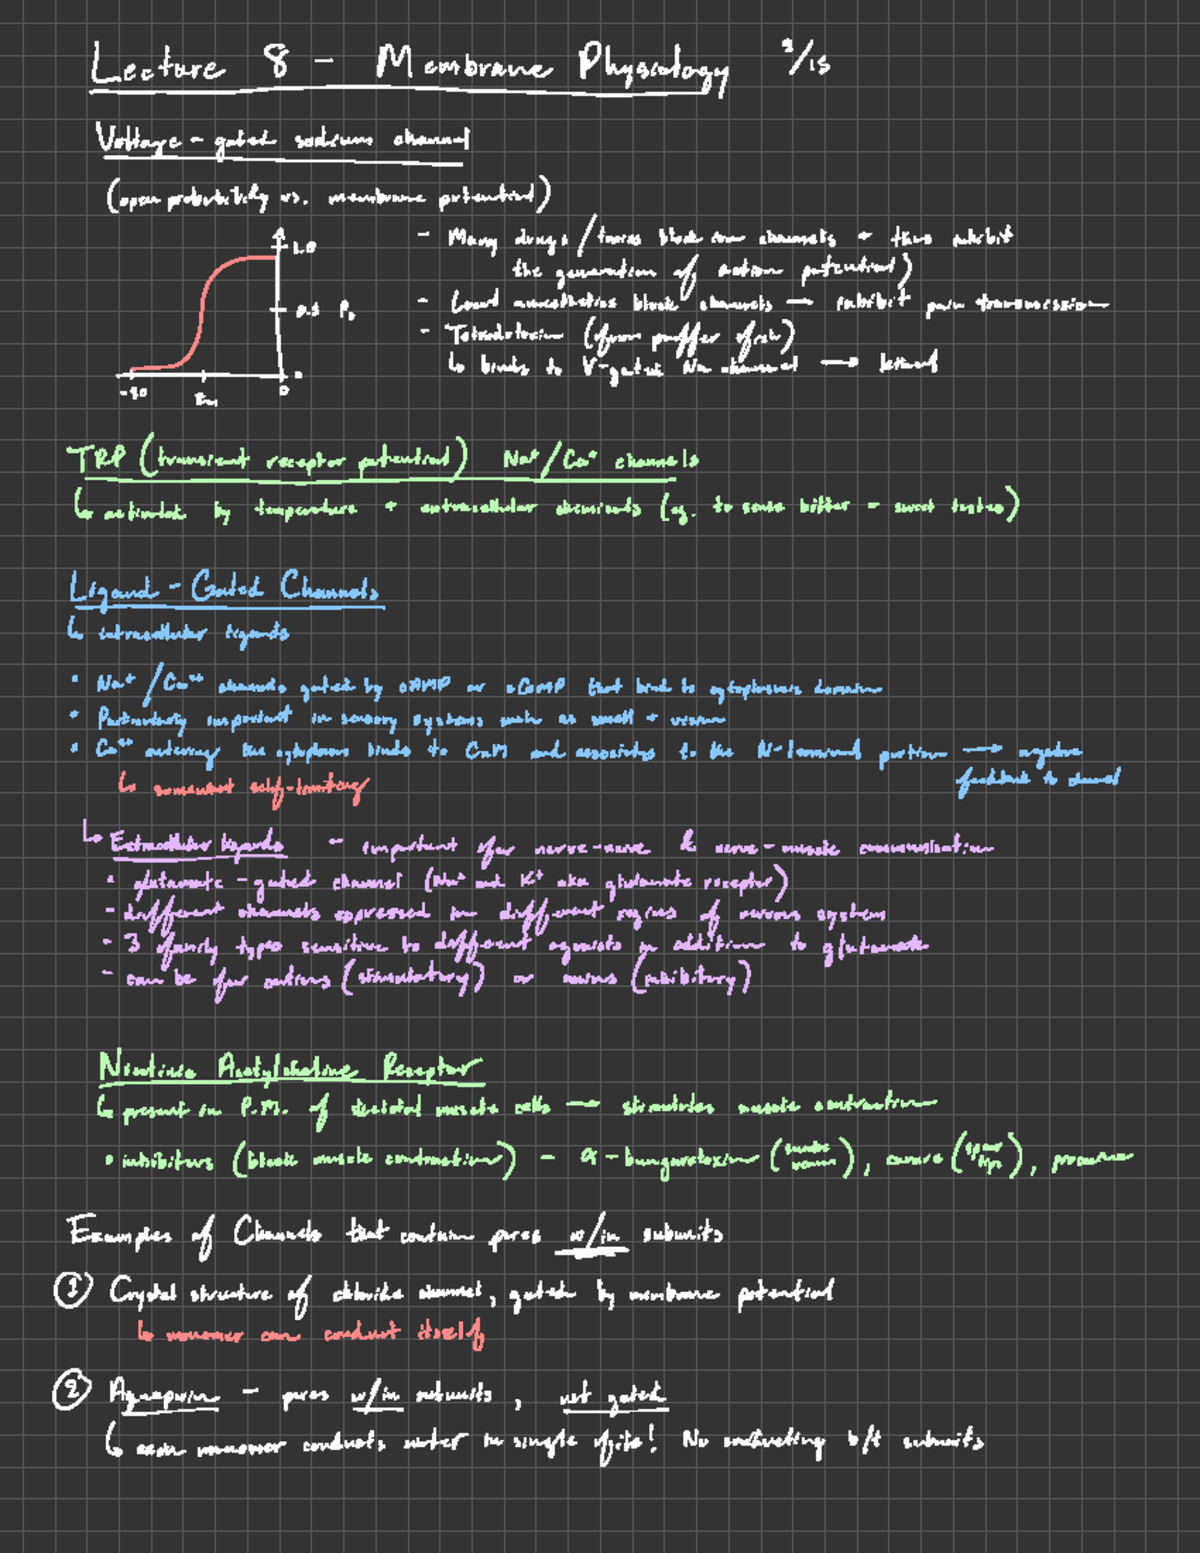 Lecture 8 - Membrane Physiology 2/15
Voltage-gated sodium channel
(open probability vs. membrane potential)
1.0
0.5 Po
0
-90 0
- Many drugs/toxins block ion channels + thus inhibit
the generation of action potential)
- Local anesthetics block channels → inhibit pain transmission
- Tetrodotoxin (from puffer fish)
↳ binds to V-gated Na channel → lethal
TRP (transient receptor potential) Na+/Ca+ channels
↳ activated by temperature + extracellular chemicals (eg. to sense bitter - sweet tastes)
Ligand-Gated Channels
↳ intracellular ligands
• Na+/Ca++ channels gated by cAMP or cGMP that bind to cytoplasmic domain
• Particularly important in sensory systems such as smell + vision
• Ca++ entering the cytoplasm binds to CaM and associates to the N-terminal portion → negative
feedback to channel
↳ somewhat self-limiting
↳ Extracellular ligands - important for nerve-nerve & nerve-muscle communication
• glutamate-gated channel (Na+ and K+ aka glutamate receptor)
- different channels expressed in different regions of nervous system
- 3 family types sensitive to different agonists in addition to glutamate
- can be for cations (stimulatory) or anions (inhibitory)
Nicotinic Acetylcholine Receptor
↳ present in P.M. of skeletal muscle cells → stimulates muscle contraction
• inhibitors (block muscle contraction) - α-bungarotoxin (snake venom), curare (spear tips),
Examples of Channels that contain pores w/in subunits
① Crystal structure of chloride channel, gated by membrane potential
↳ monomer can conduct itself
② Aquaporin - pores w/in subunits, not gated
↳ each monomer conducts water in single file! No b/t subunits